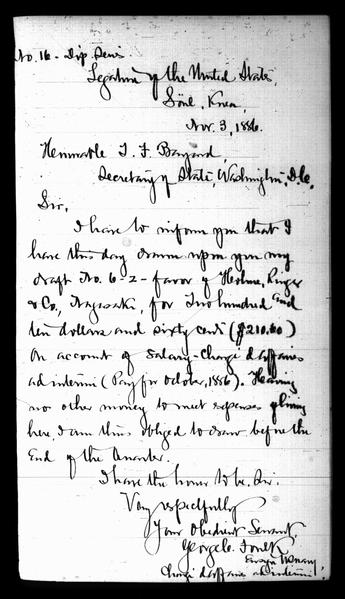 No. 16 - Dip. Series
Legation of the United States,
Söul, Korea,
Nov. 3, 1886.
Honorable T. F. Bayard,
Secretary of State, Washington, D.C.
Sir,
I have to inform you that I
have this day drawn upon you my
draft No. 6-2- favor of Holme, Ringer
& Co., Nagasaki, for Two hundred and
ten dollars and sixty cents ($210.60)
on account of Salary-Chargé d'affaires
ad interim (Pay for October, 1886). Having
no other money to meet expenses of living
here, I am thus obliged to draw before the
End of the Quarter.
I have the honor to be, Sir,
Very respectfully
Your Obedient Servant,
George C. Foulk
Ensign U.S. Navy,
Chargé d'affaires ad interim.